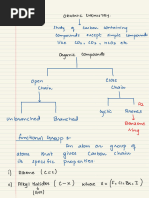 ORGANIC CHEMISTRY
Study of carbon containing
compounds except simple compounds
like CO2, CO3, HCO3 etc
Organic Compounds
Open
Chain
Close
Chain
Cyclic
Benzene
ring
Unbranched
Branched
functional Group :
An atom or group of
atoms that gives carbon chain
its specific properties.
i) Alkane (C-C)
ii) Alkyl Halides (C-X) where X = F, Cl, Br, I